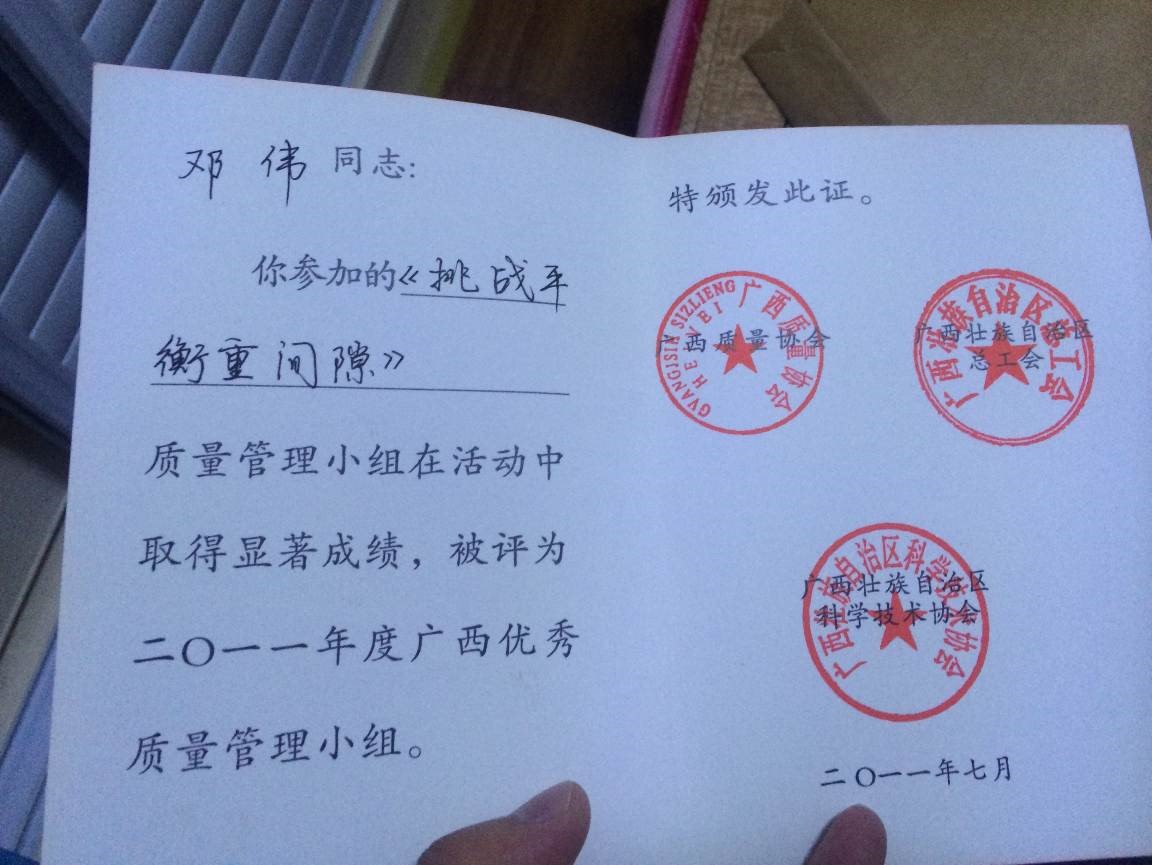 邓 伟 同志:
你参加的《挑战平
衡重间隙》
质量管理小组在活动中
取得显著成绩，被评为
二〇一一年度广西优秀
质量管理小组。
特颁发此证。
GVANGJSIH SIZLIENG HEZVEI 广西质量协会
广西质量协会
广西壮族自治区总工会
广西壮族自治区
总工会
广西壮族自治区科学技术协会
广西壮族自治区
科学技术协会
二〇一一年七月